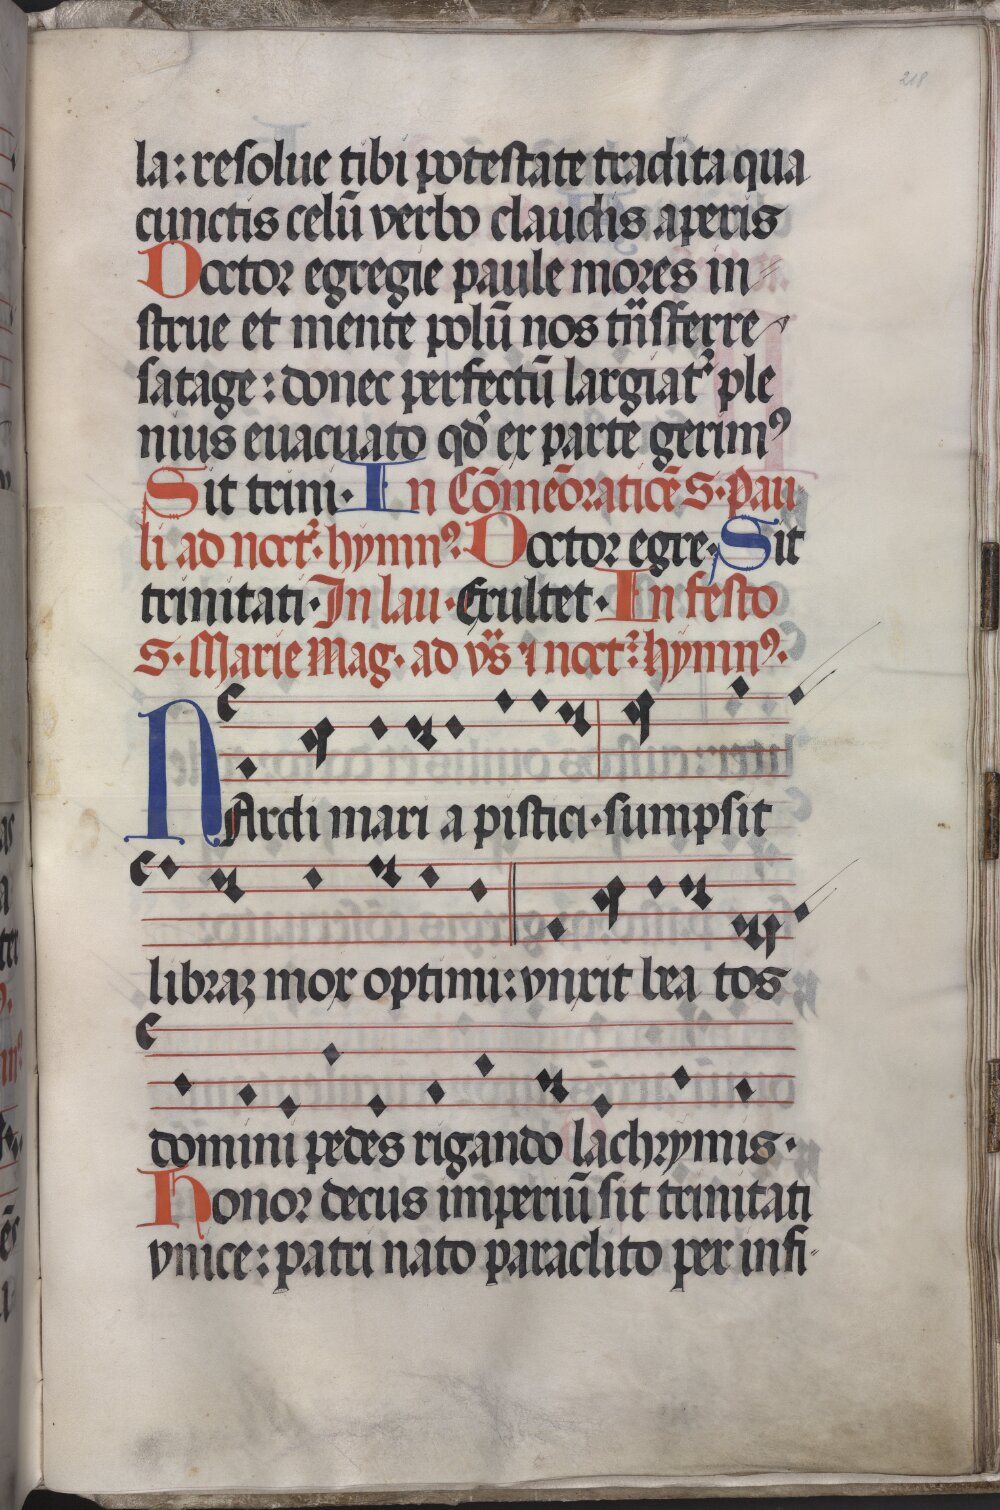 218
la: resolue tibi potestate tradita qua
cunctis celū verbo claudis aperis
Doctor egregie paule mores in
strue et mente polū nos trāsferre
satage: donec perfectū largiatᷣ ple
nius euacuato qd̓ ex parte gerimꝰ
Sit trini· In Cōmēoraticē S· Pau
li ad noctᷣ· hymnꝰ. Doctor egre· Sit
trinitati· In lau· Exultet· In festo
S· Marie Mag· ad vs̄ ⁊ noctᷣ: hymnꝰ·
NArdi mari a pistici· sumpsit
libraꝫ mox optimi: vnxit bea tos
domini pedes rigando lachrymis·
Honor decus imperiū sit trinitati
vnice: patri nato paraclito per infi-